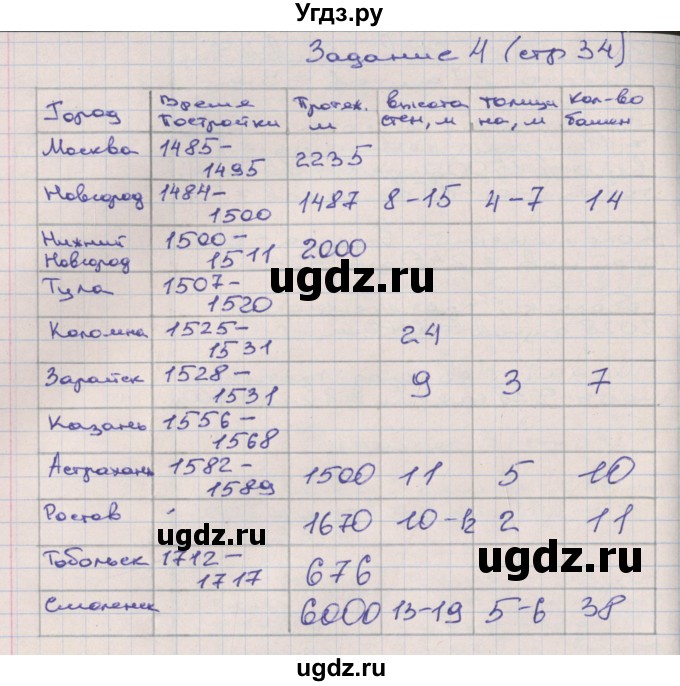 Угдз.ру
Задание 4 (стр 34)
Город Время Постройки Протяж. м высота стен, м толщина, м Кол-во башен
Москва 1485-1495 2235
Новгород 1484-1500 1487 8-15 4-7 14
Нижний Новгород 1500-1511 2000
ugdz.ru ugdz.ru
Тула 1507-1520
Коломна 1525-1531 24
Зарайск 1528-1531 9 3 7
Казань 1556-1568
Астрахань 1582-1589 1500 11 5 10
Ростов 1670 10-12 2 11
ugdz.ru ugdz.ru
Тобольск 1712-1717 676
Смоленск 6000 13-19 5-6 38
ugdz.ru